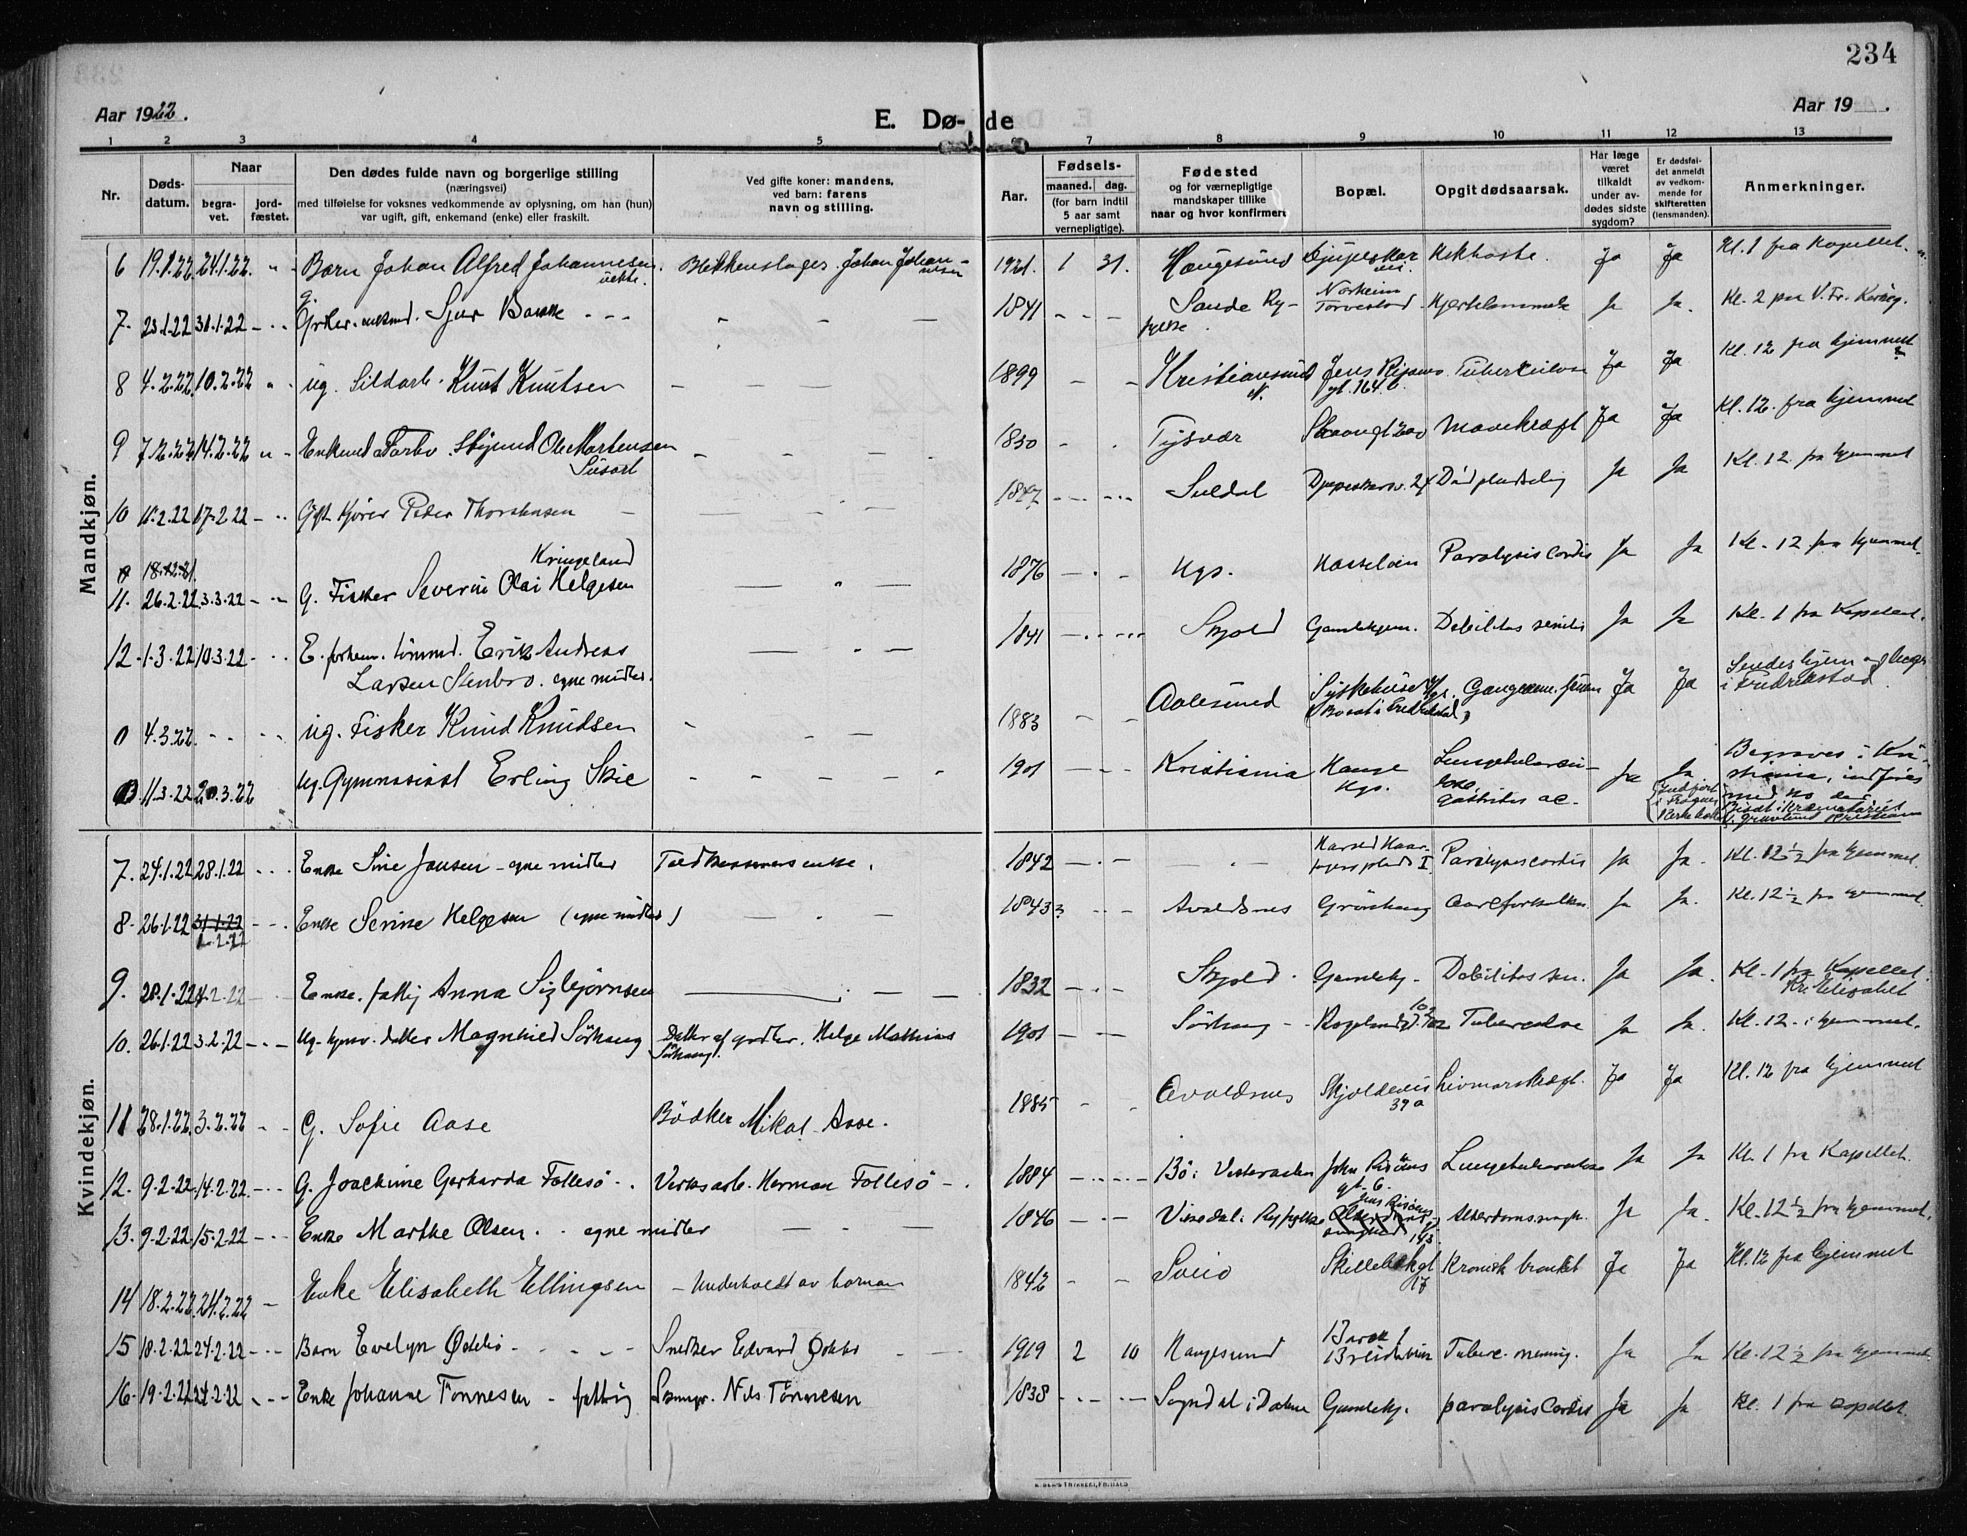 234
Aar 1922.
E. Dø- de
Aar 19 .
1 2 3 4 5 6 7 8 9 10 11 12 13
Nr.
Døds-
datum.
Naar
begra-
vet.
jord-
fæstet.
Den dødes fulde navn og borgerlige stilling
(næringsvei)
med tilføielse for voksnes vedkommende av oplysning, om han (hun)
var ugift, gift, enkemand (enke) eller fraskilt.
Ved gifte koner: mandens,
ved barn: farens
navn og stilling.
Aar.
Fødsels-
maaned. dag.
(for barn indtil
5 aar samt
vernepligtige).
Fødested
og for værnepligtige
mandskaper tillike
naar og hvor konfirmert
Bopæl.
Opgit dødsaarsak.
Har læge
været
tilkaldt
under av-
dødes sidste
sygdom?
Er dødsfal-
det anmeldt
av vedkom-
mende for
skifteretten
(lensmanden).
Anmerkninger.
Mandkjøn.
6 19.1.22. 24.1.22. Barn Johan Alfred Johannesen. uekte. Blikkenslager Johan Johan-nesen 1921. 1 31. Haugesund Kikhoste. Ja Ja Kl. 1 fra Kapellet.
7. 23.1.22 31.1.22 Sjur Bakke 1841 Sande Ry-fylke Norheim Torvestad Hjerteslammelse Ja Ja. Kl. 2
8 4.2.22. 10.2.22 ug. Sildarb. Knut Knutsen 1899 Kristiansund N. Jens Risøens gt. 164 b. Tuberkulose Ja Ja Kl. 12 fra hjemmet
9 7.2.22 14.2.22 Enkemd. Ole Mortensen 1850 Tysvær Mavekræft Ja Ja Kl. 12. fra hjemmet
10 11.2.22 17.2.22 Gift kjører Peder Thorstensen 1847 Suldal Død pludselig Ja Ja Kl. 12 fra hjemmet
18.12.21.
11. 26.2.22 3.3.22 G. Fisker Severin Olai Helgesen Kringeland 1876 Hgs. Hasseløen Paralysis Cordis Ja Ja Kl. 12 fra hjemmet.
12. 1.3.22 10.3.22 E. forhen. tømmd. Erik Andreas
Larsen Stenbro. egne midler. 1841 Skjold Gamlehjem. Debilitas senilis Ja Ja Kl. 1 fra Kapellet.
0 4.3.22. ug. Fisker Knud Knudsen 1883 Aalesund Sykehuset Hgs. (Bosat i Fredrikstad) Ja Ja Sendes hjem og begr. i Fredrikstad
11.3.22 20.3.22 ug. Gymnasiast Erling Skie 1901 Kristiania Hauge Hgs. Lungetuberku-lose Gastritis ac. Ja Ja Indført i Frogner Kirkebok Begraves i Kri-stiania, indføres med no. der
Kvindekjøn.
7. 24.1.22 28.1.22 Enke Sine Jansen - egne midler Toldkasserers enke. 1842 Paralysis cordis Ja Ja. Kl. 12 ½ fra hjemmet.
8. 26.1.22 31.1.22 2.2.22 Enke Serine Helgesen (egne midler) 1843 Avaldsnes Grønhaug Aareforkalkn. Ja Ja. Kl. 12 ½ fra hjemmet.
9. 28.1.22 4.2.22 Enke. fattig Anna Sigbjørnsen 1832 Skjold. Gamlehj. Debilitas sen. Ja Ja. Kl. 1 fra Kapellet.
10. 26.1.22 3.2.22 ug. hjemv. datter Magnhild Sørhaug Datter af grdbr. Helge Mathias Sørhaug. 1901 Sørhaug Tuberculose Ja Ja. Kl. 12. i hjemmet.
11 28.1.22. 3.2.22 G. Sofie Aase Bødker Mikal Aase. 1885 Avaldsnes Skjoldeveis 39 a Livmorskræft. Ja Ja Kl. 12 fra hjemmet
12. 9.2.22 14.2.22. G. Joachime Gerharda Follesø Verksarb. Herman Follesø 1884 Bø i Vesteraalen John Risøens gt. 6. Lungetuberculose Ja Ja Kl. 1 fra Kapellet.
13. 9.2.22 15.2.22 Enke Marthe Olsen. egne midler 1846 Vikedal i Ryfylke Jens Risøens gt. 143 Alderdomssvagh. Ja Ja. Kl. 12 ½ fra hjemmet.
14 18.2.22. 24.2.22 Enke Elisabeth Ellingsen - Underholdt av barnan 1842 Sveio Skillebekgt 17 Kronisk bronkit Ja Ja Kl. 12 fra hjemmet
15 18.2.22 24.2.22 Barn Evelyn Østebø Snedker Edvard Østebø 1919 2 10 Haugesund Barak 1 Tuberc. mening. Ja Ja Kl. 12 ½ fra hjemmet.
16. 19.2.22 24.2.22 Enke Johanne Tønnesen - fattig Skomgr. Nils Tønnesen 1838 Sogndal i Dalene Gamlehj. paralysis Cordis Ja Ja Kl. 1 fra Kapellet.